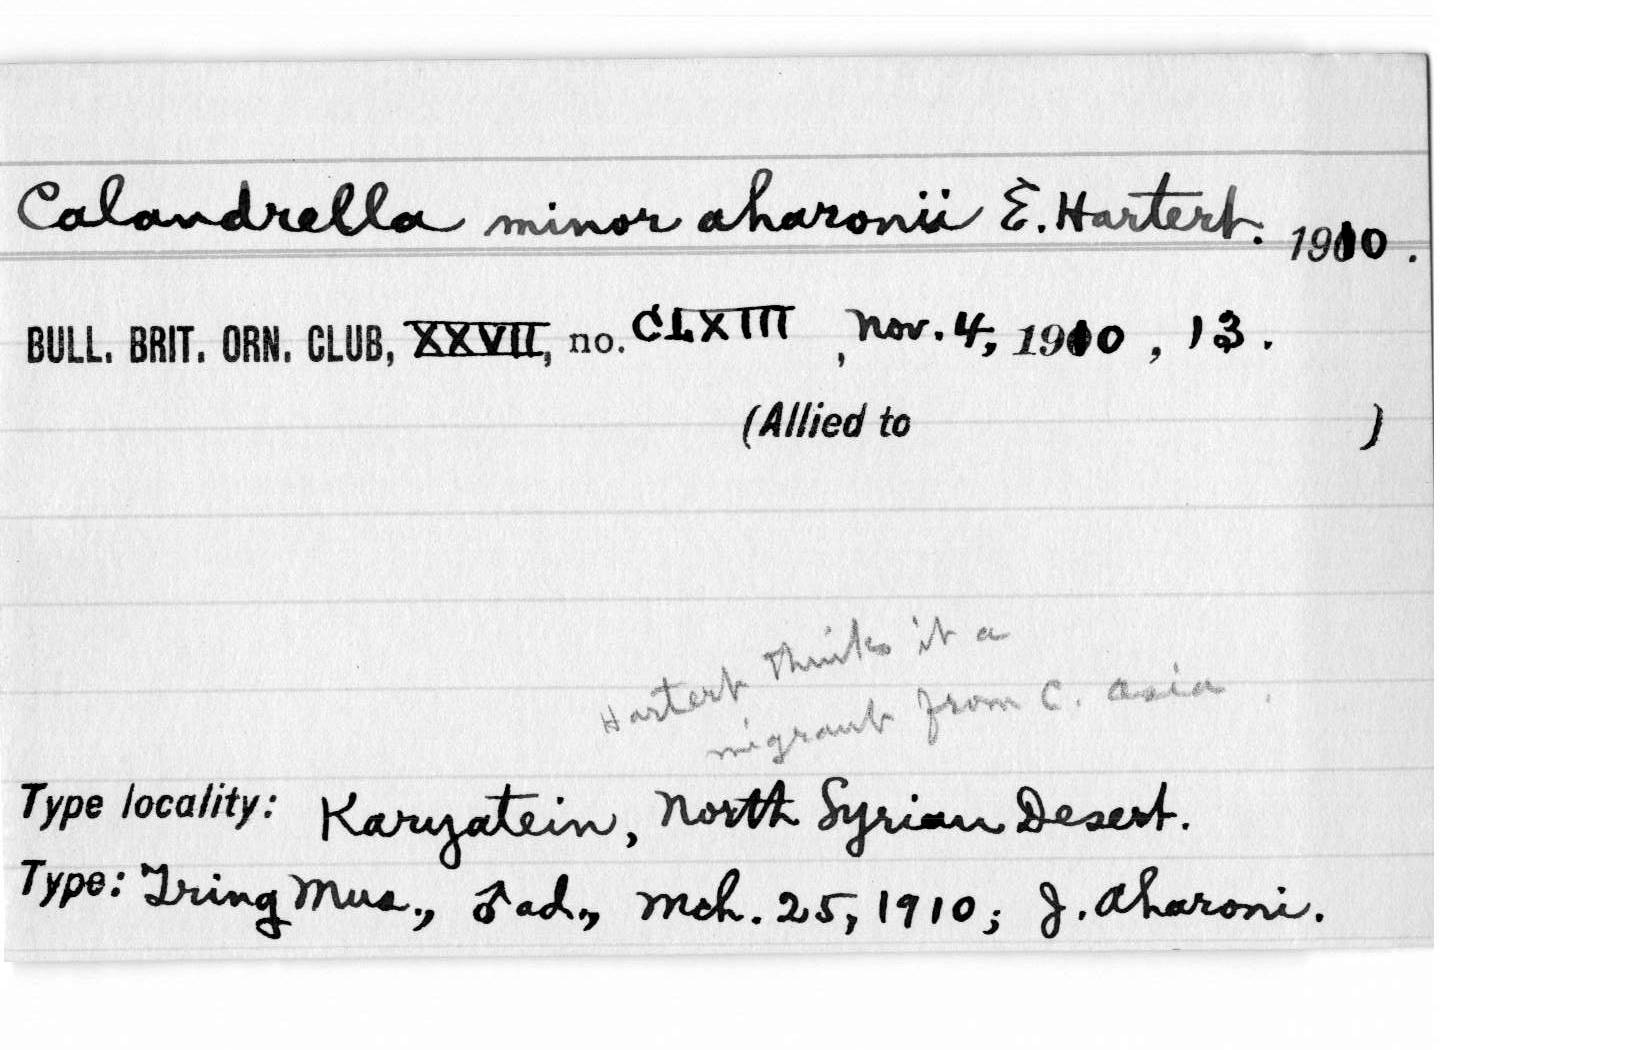 Calandrella minor aharonii E. Hartert. 1910.
BULL. BRIT. ORN. CLUB, XXVII, no. CLXIII, Nov. 4, 1910, 13.
(Allied to )
Hartert thinks it a
migrant from C. Asia.
Type locality: Karyatein, North Syrian Desert.
Type: Tring Mus., ♂ ad., Mch. 25, 1910; J. Aharoni.